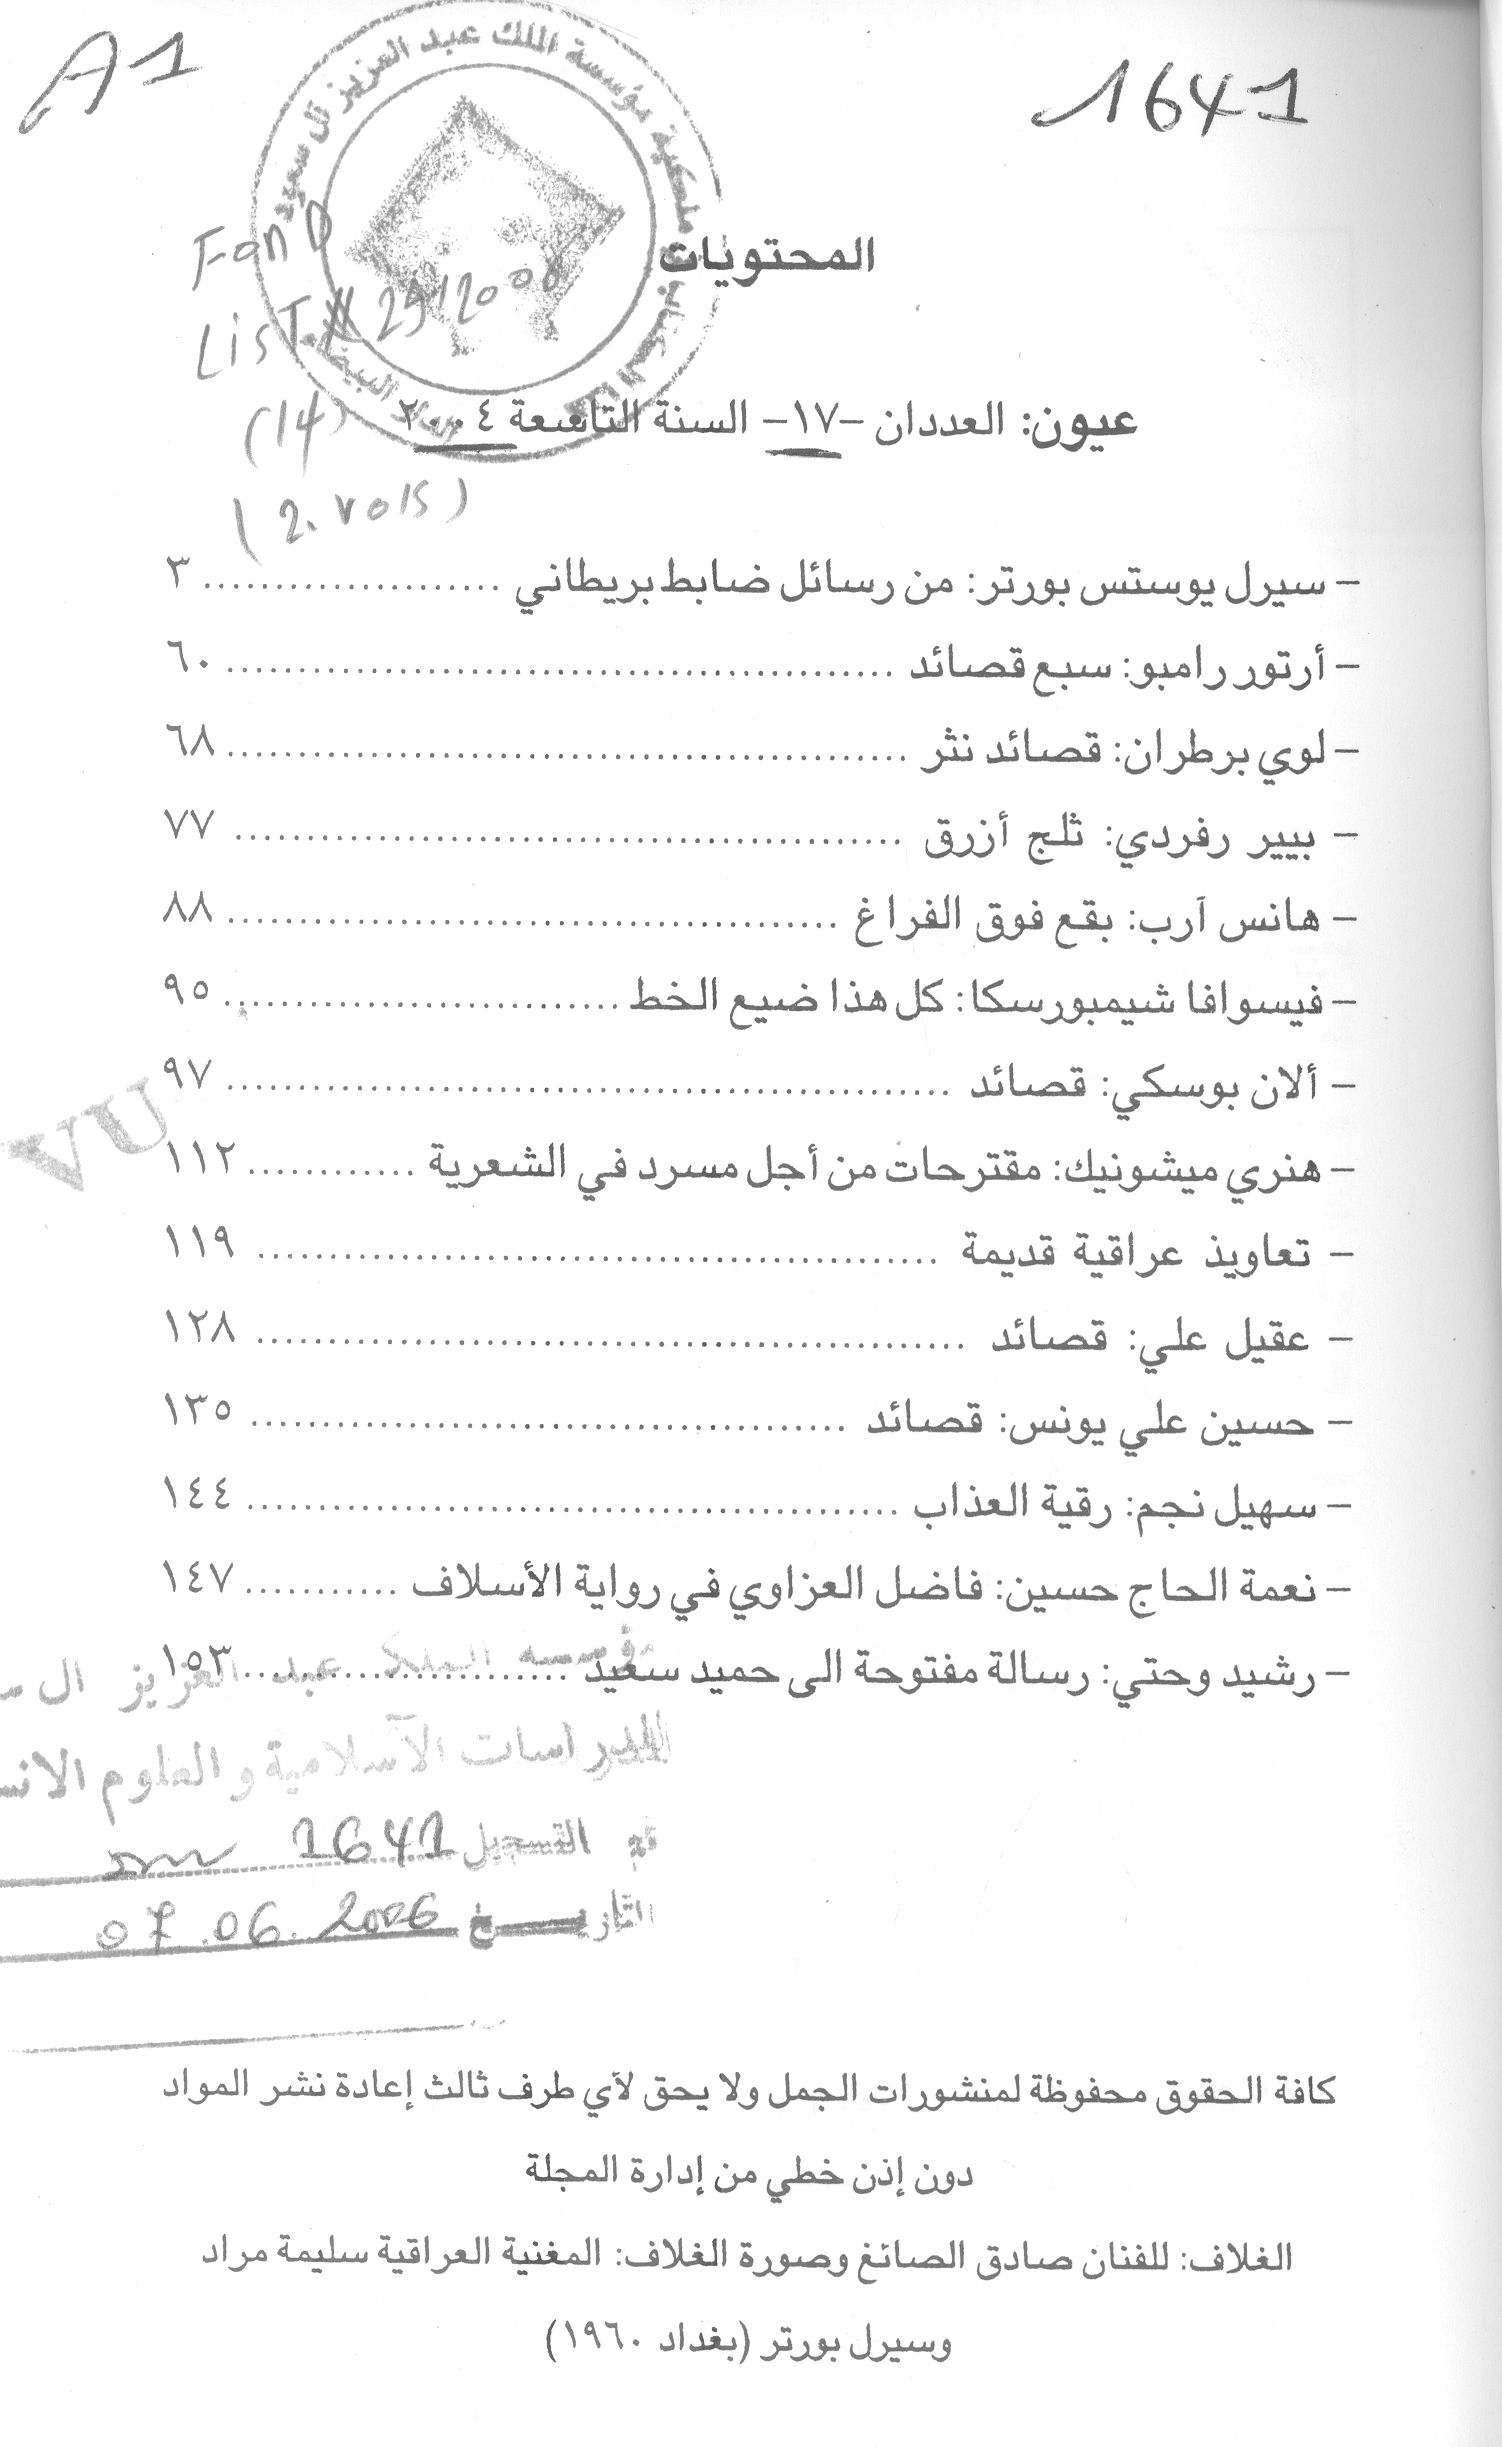 A1
1641
ملكية مؤسسة الملك عبد العزيز آل سعود
المحتويات
FonD
LisT 29/2000
(14)
عيون: العددان -١٧- السنة التاسعة ٢٠٠٤
(2.vols)
– سيرل يوستس بورتر: من رسائل ضابط بريطاني ..................... ٣
– أرتور رامبو: سبع قصائد ............................................... ٦٠
– لوي برطران: قصائد نثر ................................................ ٦٨
– بيير رفردي: ثلج أزرق ............................................... ٧٧
– هانس آرب: بقع فوق الفراغ ........................................... ٨٨
– فيسوافا شيمبورسكا: كل هذا ضيع الخط ............................ ٩٥
– ألان بوسكي: قصائد ................................................... ٩٧
VU
– هنري ميشونيك: مقترحات من أجل مسرد في الشعرية ............ ١١٢
– تعاويذ عراقية قديمة ................................................ ١١٩
– عقيل علي: قصائد .................................................. ١٢٨
– حسين علي يونس: قصائد .......................................... ١٣٥
– سهيل نجم: رقية العذاب .............................................. ١٤٤
– نعمة الحاج حسين: فاضل العزاوي في رواية الأسلاف ........... ١٤٧
– رشيد وحتي: رسالة مفتوحة الى حميد سعيد ....................... ١٥٣
مؤسسة الملك عبد العزيز ال
للدراسات الآسلامية والعلوم الانس
التسجيل 1641
التاريخ 07.06.2006
كافة الحقوق محفوظة لمنشورات الجمل ولا يحق لأي طرف ثالث إعادة نشر المواد
دون إذن خطي من إدارة المجلة
الغلاف: للفنان صادق الصائغ وصورة الغلاف: المغنية العراقية سليمة مراد
وسيرل بورتر (بغداد ١٩٦٠)